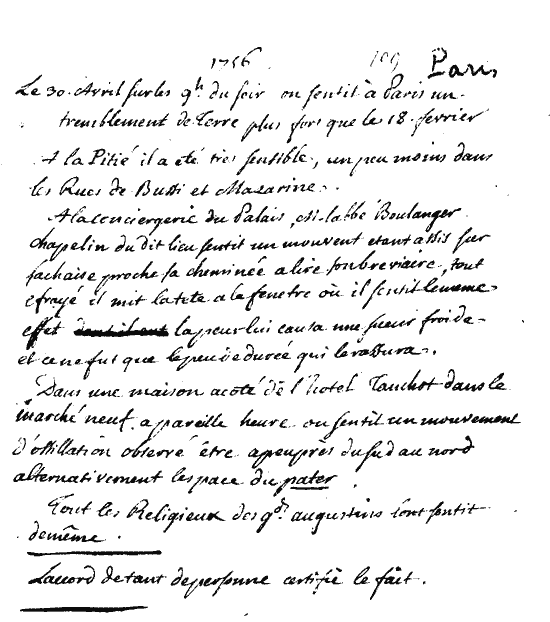 1756 109 Paris
Le 30. Avril sur les 9h du soir on sentit à Paris un
tremblement de Terre plus fors que le 18. fevrier
A la Pitié il a été tres sensible, un peu moins dans
les Rues de Bussi et Mazarine.
A la conciergerie du Palais, M. l'abbé Boulanger
chapelin du dit lieu sentit un mouvent etant assis sur
sa chaise proche sa cheminée a lire son breviaire, tout
efrayé il mit la tete a la fenetre où il sentit le meme
effet la peur lui causa une sueur froide
et ce ne fut que le peu de durée qui le rassura.
Dans une maison acoté de l'hotel Tauchot dans le
marché neuf. a pareille heure on sentit un mouvement
d'ossillation observé être apeuprès du sud au nord
alternativement l'espace du pater
Tout les Religieux des gds augustins l'ont sentit
demême.
L'accord de tant de personne certifie le fait.